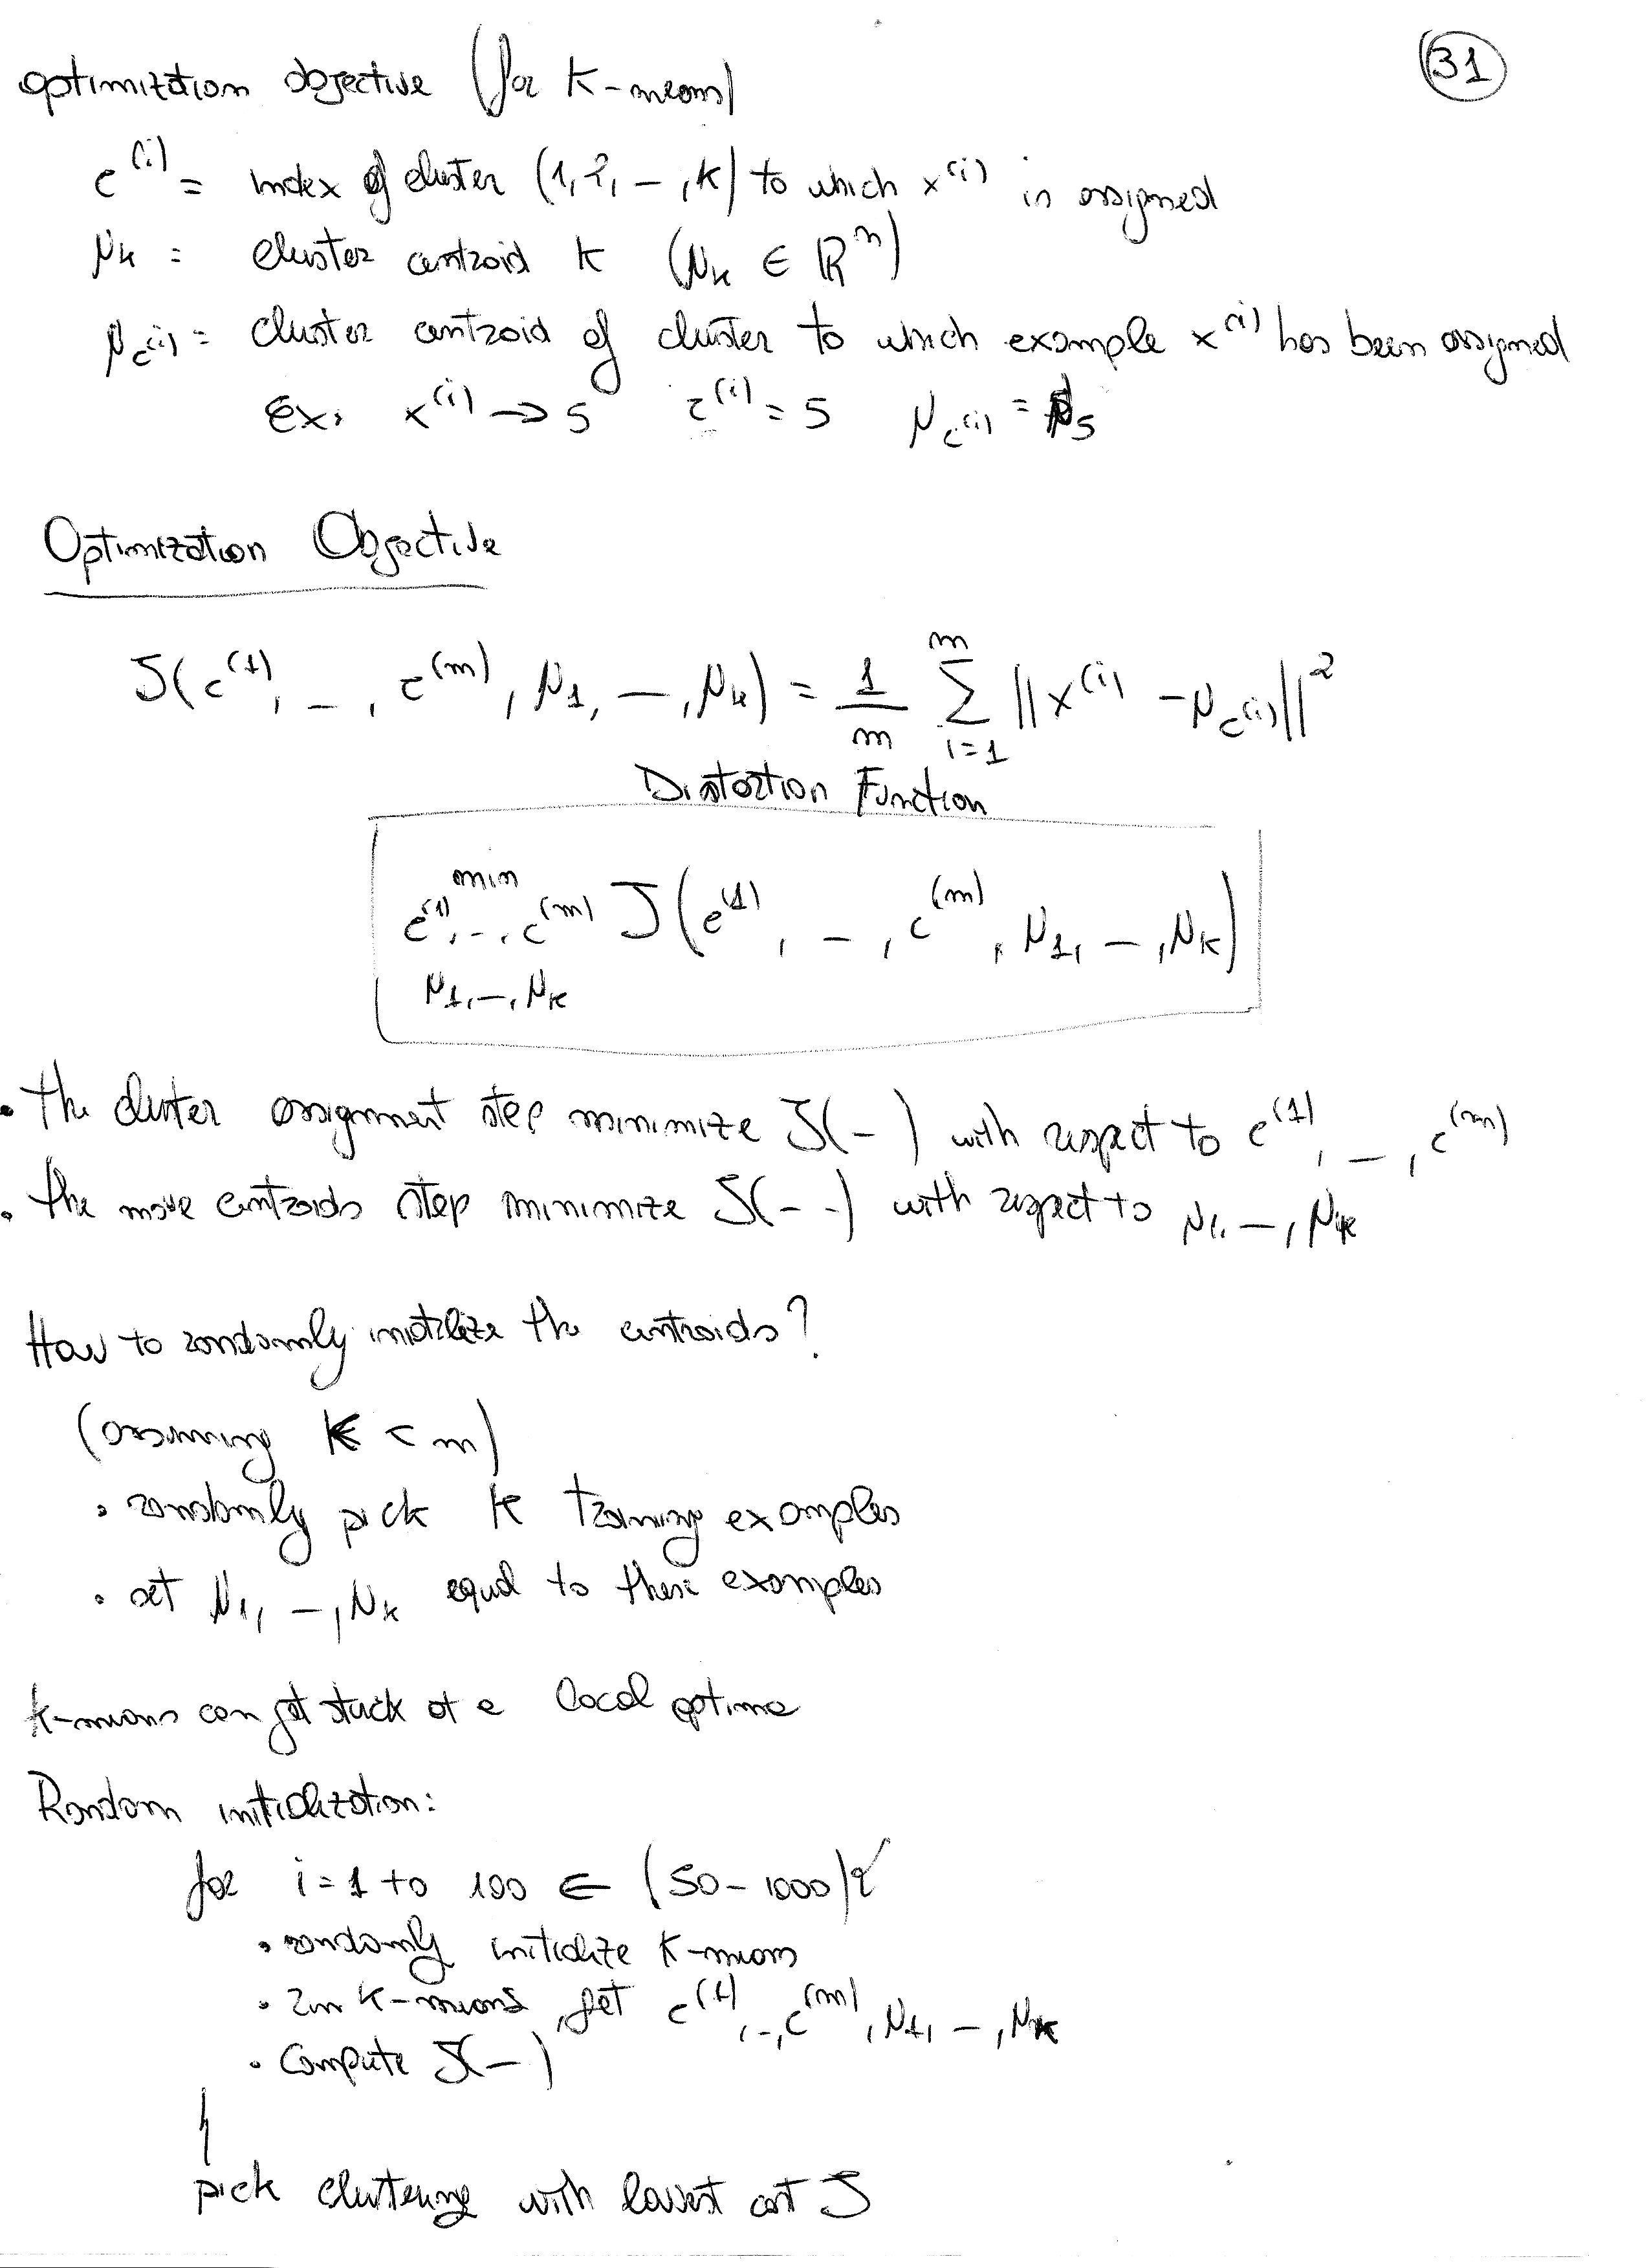 optimization objective (for K-means)
31
c^(i) = index of cluster (1,2,-,K) to which x^(i) is assigned
μk = cluster centroid K (μk ∈ ℝ^n)
μc(i) = cluster centroid of cluster to which example x^(i) has been assigned
Ex. x^(i) → 5 c^(i) = 5 μc(i) = μ5
Optimization Objective
J(c^(1), -, c^(m), μ1, -, μk) = 1/m Σ_{i=1}^{m} ||x^(i) - μc(i)||^2
Distortion Function
min J(c^(1), -, c^(m), μ1, -, μk)
c^(1), -, c^(m)
μ1, -, μk
• the cluster assignment step minimize J(-) with respect to c^(1), -, c^(m)
• the move centroids step minimize J(--) with respect to μ1, -, μk
How to randomly initialize the centroids?
(assuming K < m)
• randomly pick K training examples
• set μ1, -, μk equal to these examples
k-means can get stuck at a local optima
Random initialization:
for i = 1 to 100 ∈ (50-1000) {
• randomly initialize K-means
• run K-means, get c^(1), -, c^(m), μ1, -, μk
• Compute J(-)
}
pick clustering with lowest cost J